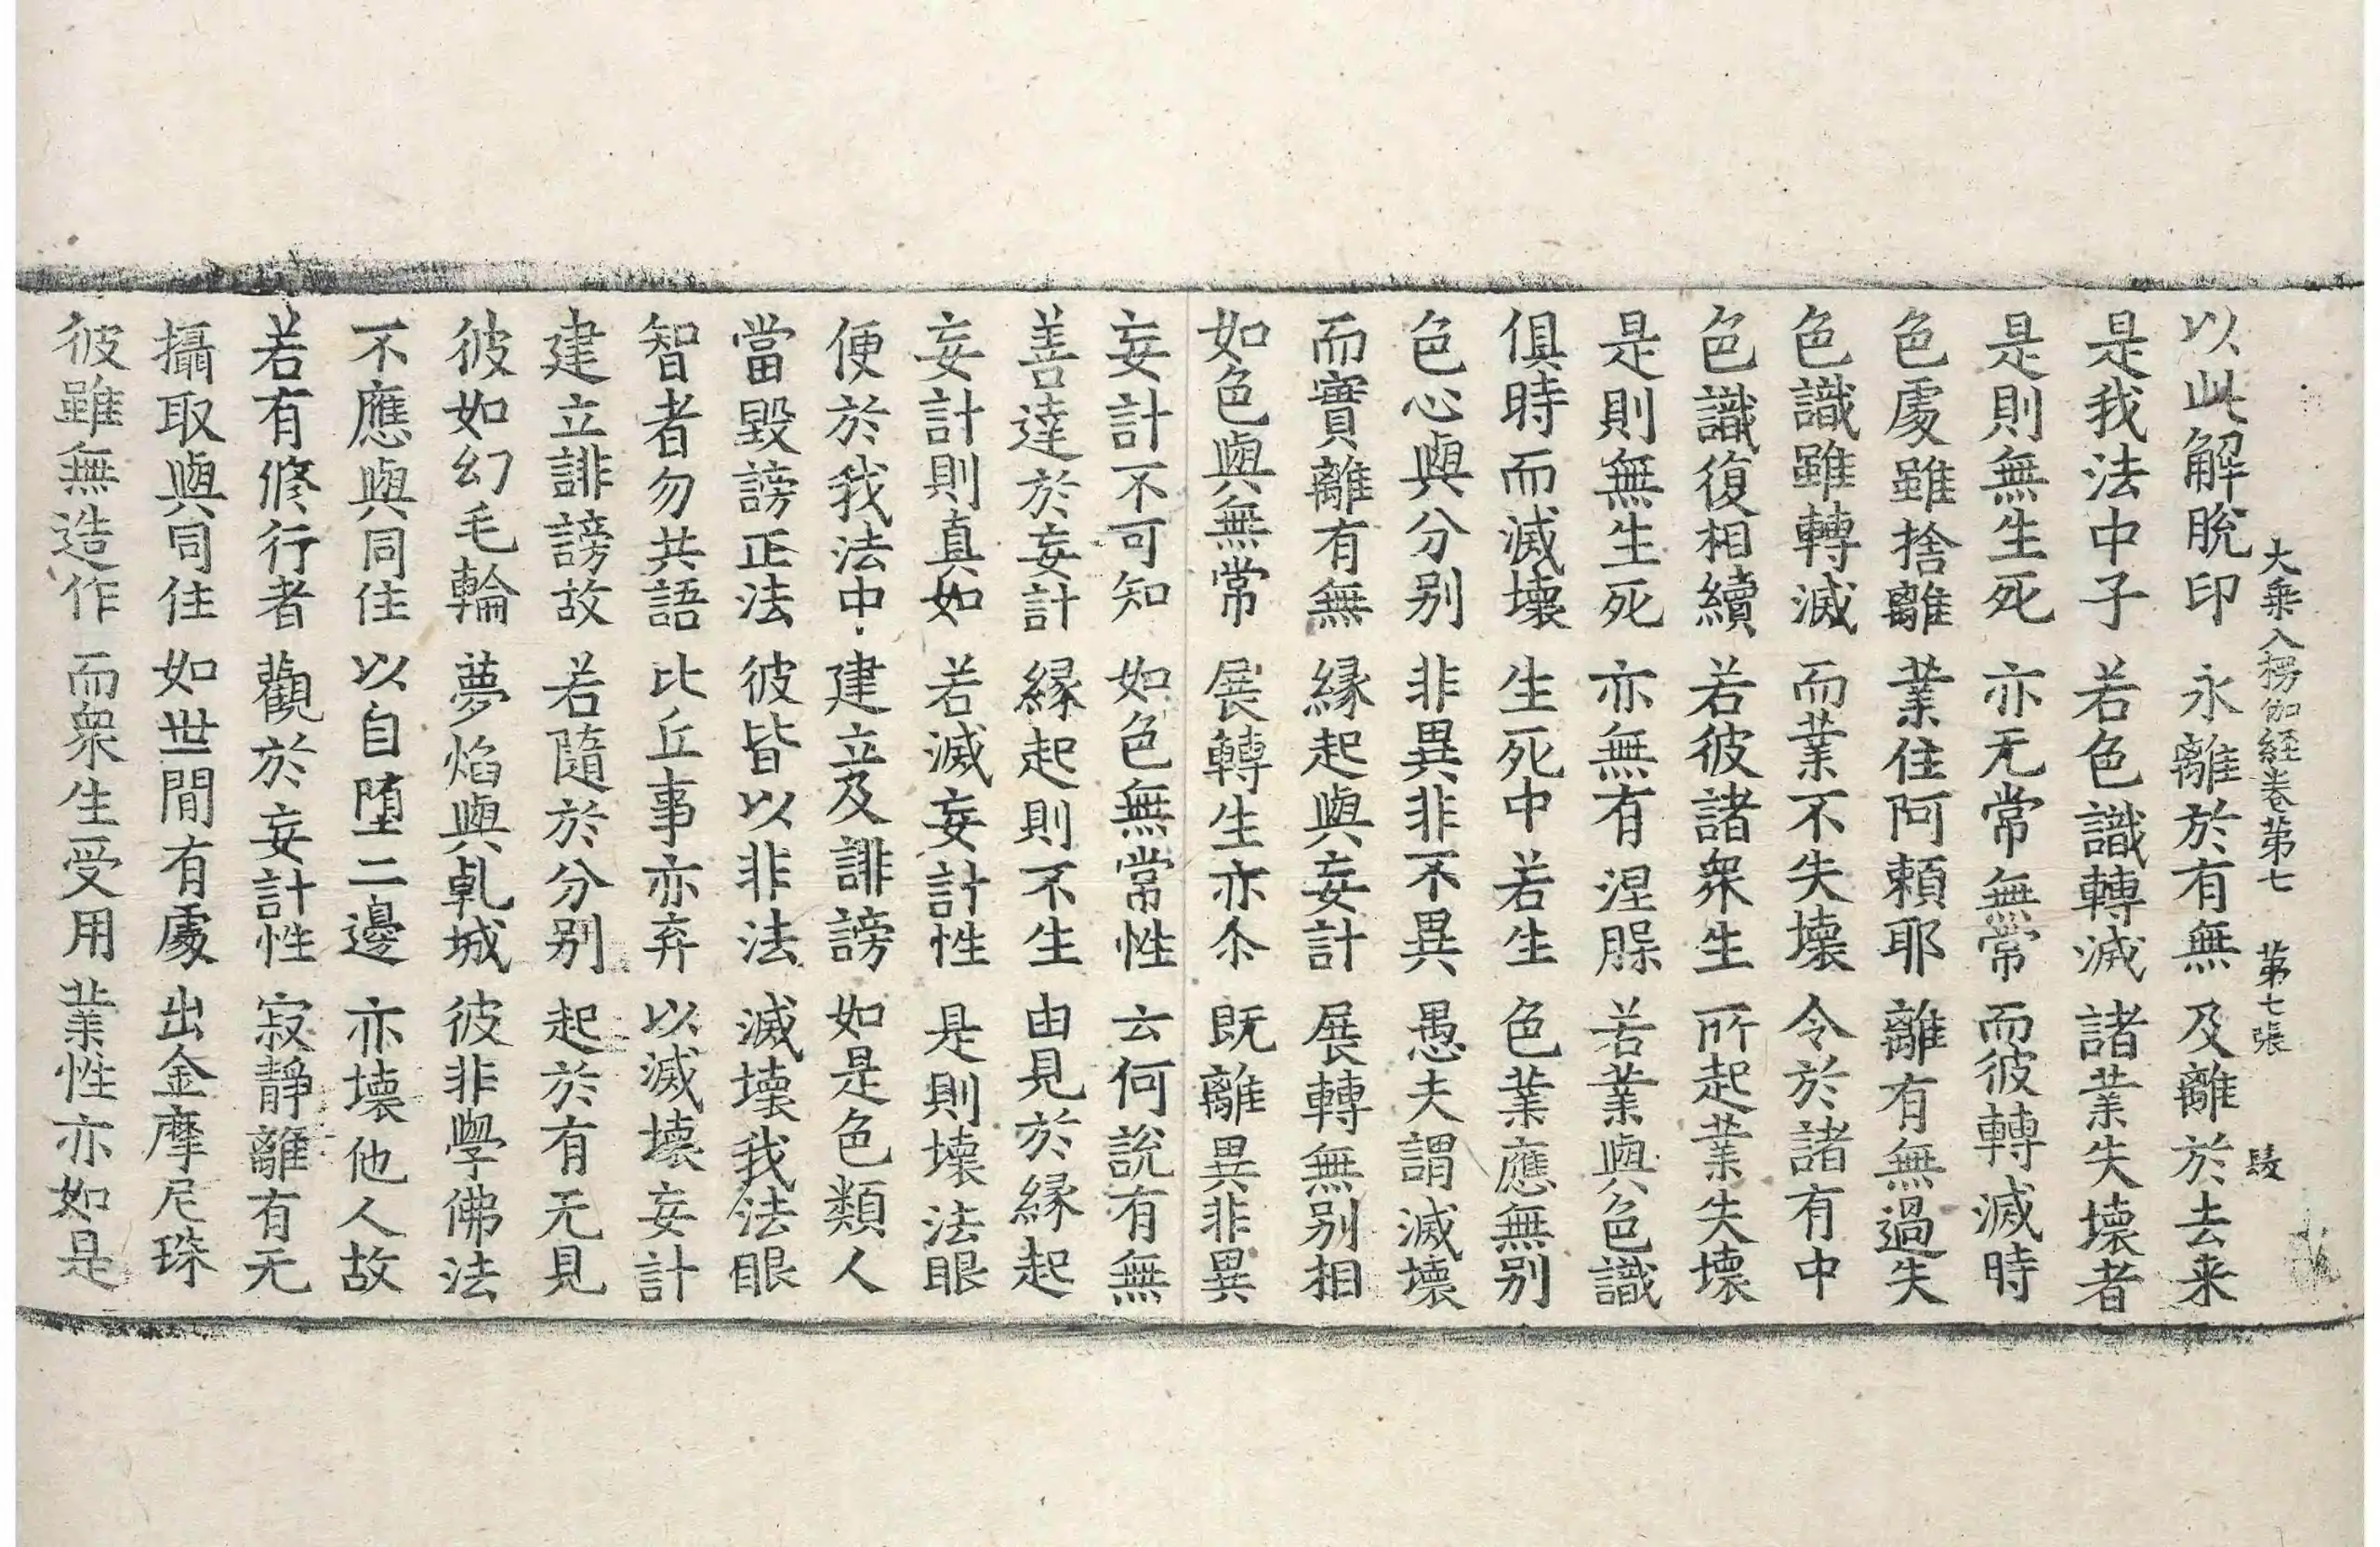 大乗入楞伽経卷苐七　苐七張
以此解脫印　永離於有無　及離於去来
是我法中子　若色識轉滅　諸業失壞者
是則無生死　亦无常無常　而彼轉滅時
色處雖捨離　業住阿頼耶　離有無過失
色識雖轉滅　而業不失壞　令於諸有中
色識復相續　若彼諸衆生　所起業失壞
是則無生死　亦無有涅槃　若業與色識
俱時而滅壞　生死中若生　色業應無别
色心與分别　非異非不異　愚夫謂滅壞
而實離有無　縁起與妄計　展轉無别相
如色與無常　展轉生亦尒　既離異非異
妄計不可知　如色無常性　云何說有無
善達於妄計　縁起則不生　由見於縁起
妄計則真如　若滅妄計性　是則壞法眼
便於我法中　建立及誹謗　如是色類人
當毀謗正法　彼皆以非法　滅壞我法眼
智者勿共語　比丘事亦弃　以滅壞妄計
建立誹謗故　若隨於分别　起於有无見
彼如幻毛輪　夢焰與乹城　彼非學佛法
不應與同住　以自堕二邊　亦壞他人故
若有修行者　觀於妄計性　寂靜離有无
攝取與同住　如世間有處　出金摩尼珠
彼雖無造作　而衆生受用　業性亦如是